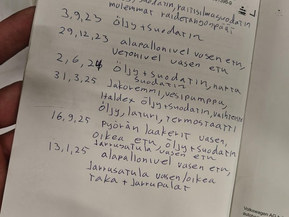 molemmat raidetangonpäät
3,9,23 öljy + suodatin
29,12,23 alapallonivel vasen etu,
vetonivel vasen etu
2,6,24 öljy + suodatin, raitis
suodatin
31,3,25 Jakoremmi, vesipumppu,
Haldex öljy + suodatin, vaihteisto
öljy, laturi, termostaatti
16,9,25 Pyörän laakerit vasen,
oikea etu, öljy + suodatin
Jarrusatula, vasen etu
13,1,25 alapallonivel vasen etu,
Jarrusatula vasen/oikea
taka + Jarrupalat